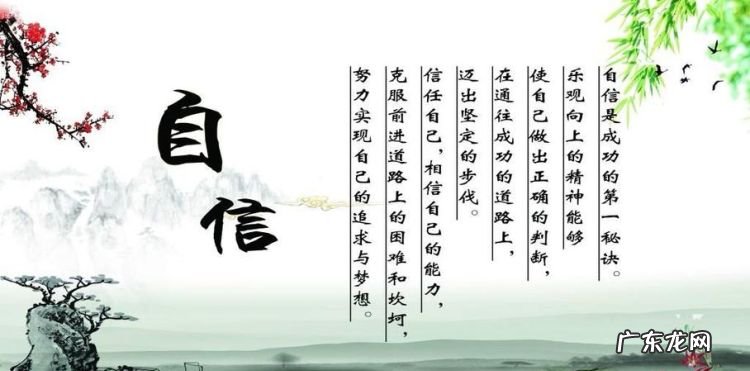 自信
自信是成功的第一秘诀。
乐观向上的精神能够
使自己做出正确的判断，
在通往成功的道路上，
迈出坚定的步伐。
信任自己，相信自己的能力，
克服前进道路上的困难和坎坷，
努力实现自己的追求与梦想。
广东龙网